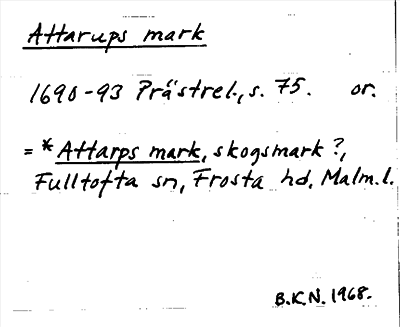 Attarups mark
1690-93 Prästrel., s. 75. or.
= *Attarps mark, skogsmark?,
Fulltofta sn, Frosta hd, Malm.l.
B.K.N. 1968.